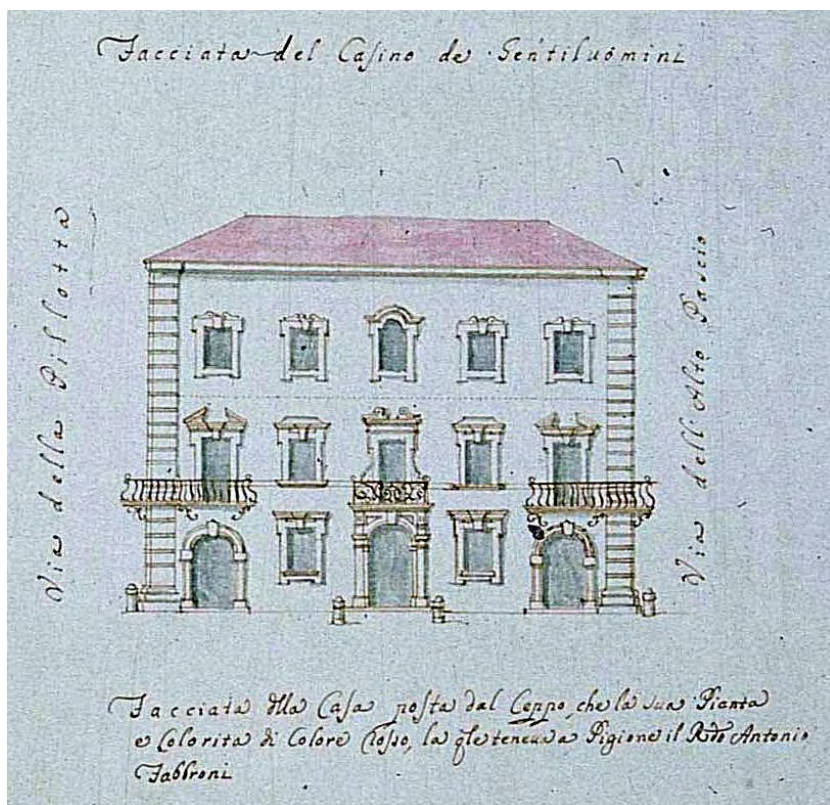 Facciata del Casino de Gentiluomini
Via della Pillotta
Via dell'Alto Pascio
Facciata dlla Casa posta dal Ceppo, che la sua Pianta
e Colorita di Colore Rosso, la qle teneua a Pigione il Rdo Antonio
Fabbroni